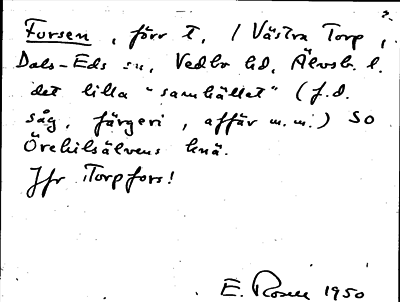 Forsen, förr t. / Västra Torp,
Dals-Eds sn, Vedbo hd, Älvsb. l.
det lilla "samhället" (f.d.
såg, färgeri, affär m.m.) SO
Örekilsälvens knä.
Jfr Torpfors!
E. Rosell 1950